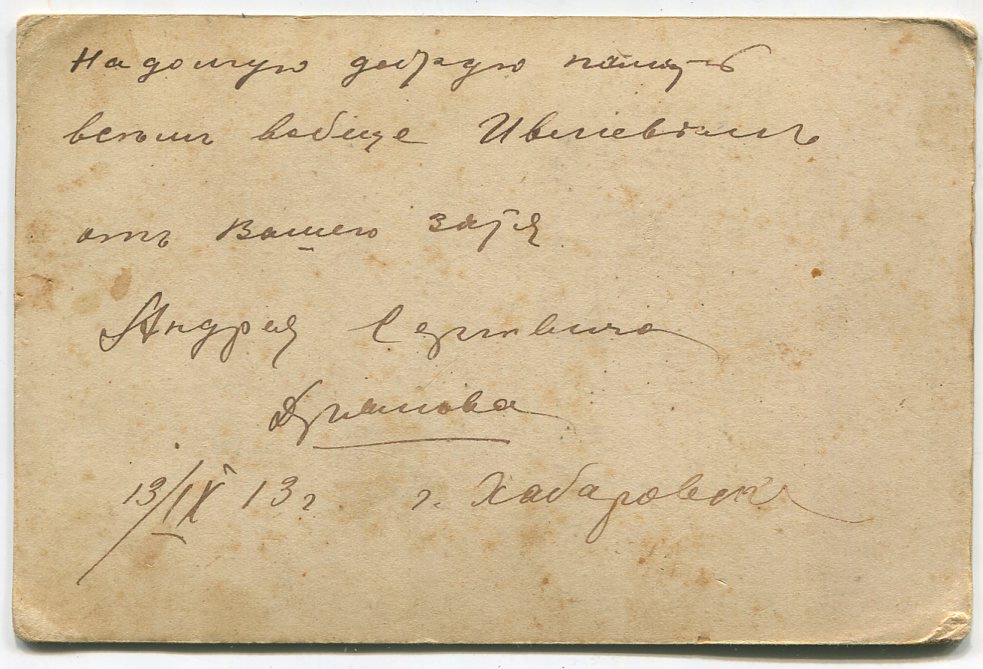 На долгую добрую память
всѣмъ вобще Ивлевымъ
отъ Вашего зятя
Андрея Сергѣевича
13/IX 13 г г. Хабаровскъ